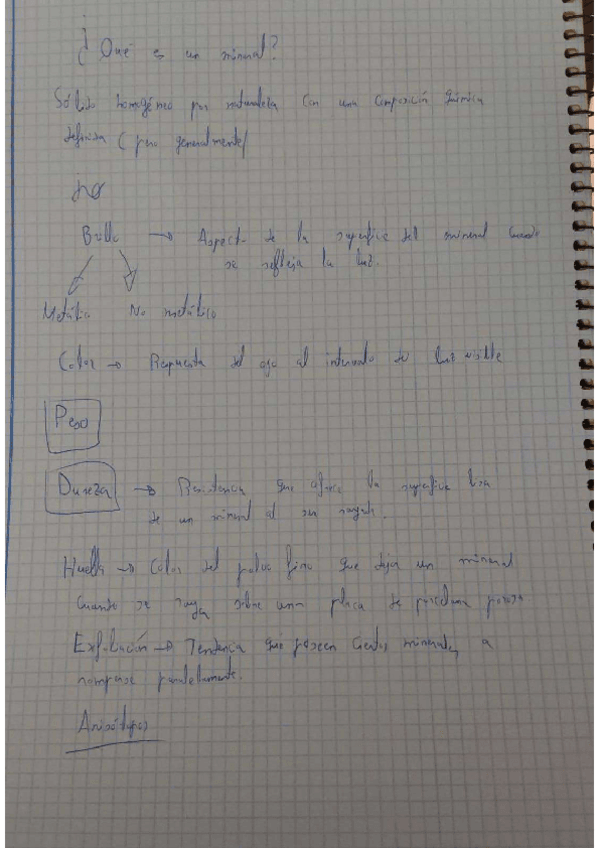 ¿Qué es un mineral?
Sólido homogéneo por naturaleza con una composición química
definida (pero generalmente
no
Brillo → Aspecto de la superficie del mineral cuando
se refleja la luz.
Metálico No metálico
Color → Respuesta del ojo al intervalo de luz visible
Peso
Dureza → Resistencia que ofrece la superficie lisa
de un mineral al ser rayado.
Huella → Color del polvo fino que deja un mineral
cuando se raya sobre una placa de porcelana porosa
Exfoliación → Tendencia que poseen ciertos minerales a
romperse paralelamente.